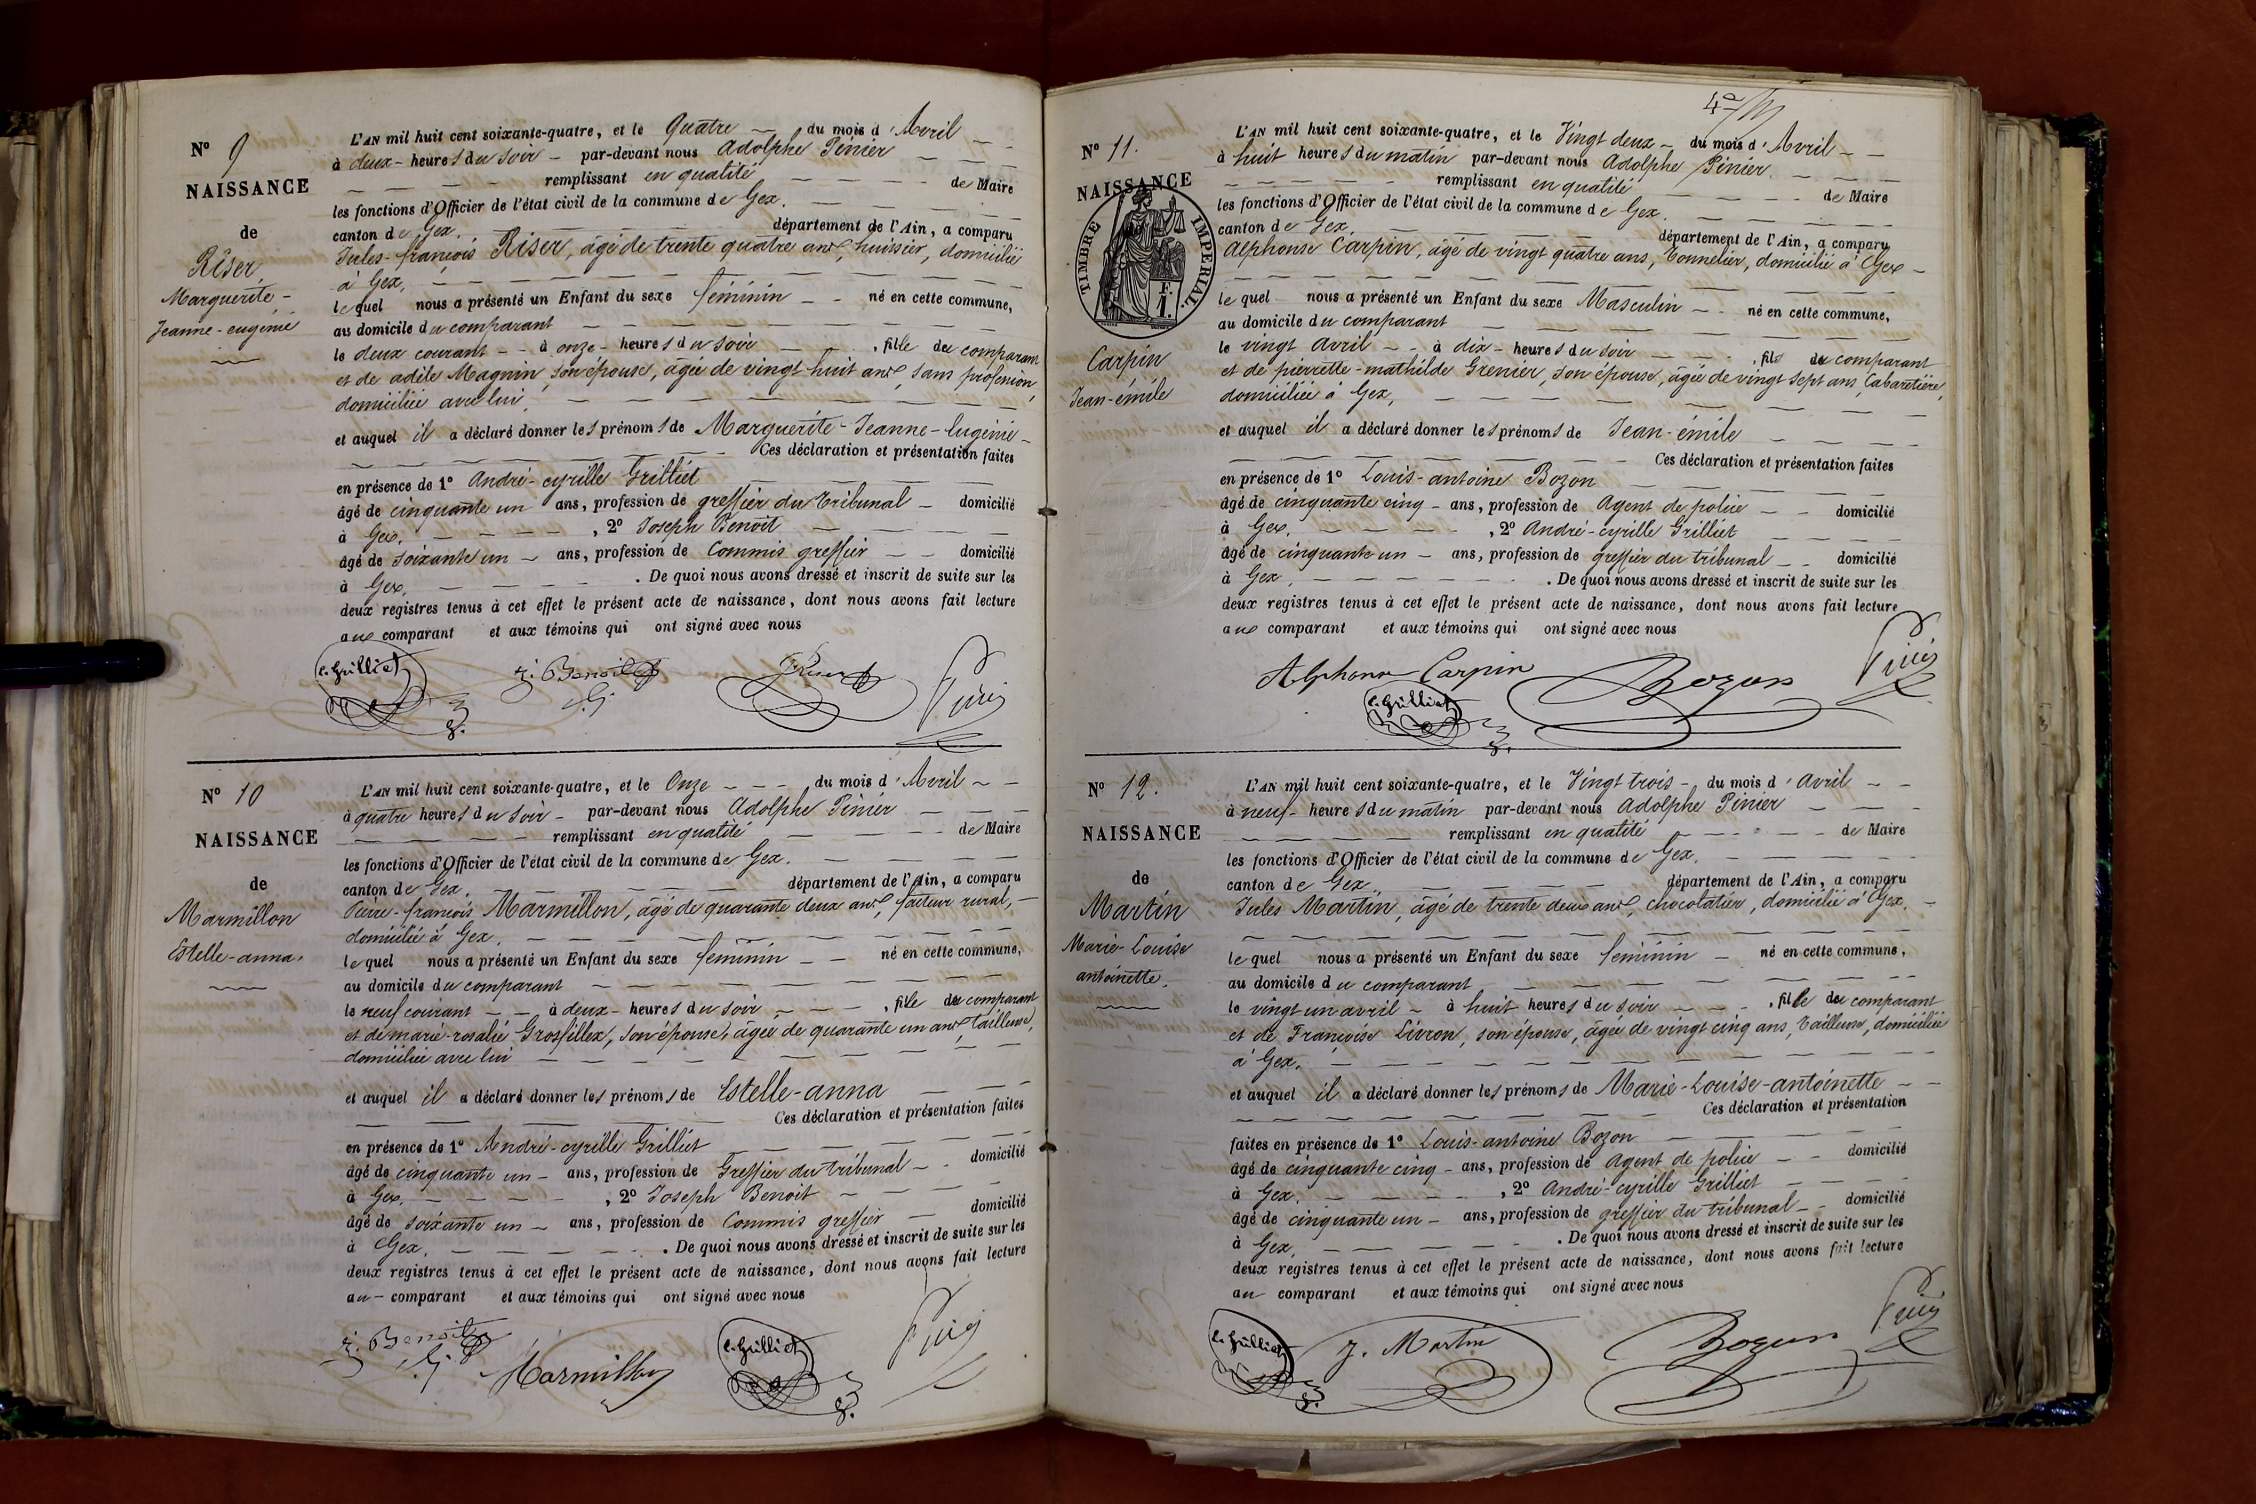 N° 9
NAISSANCE
de
Riser
Marguerite-
Jeanne-eugénie
L'AN mil huit cent soixante-quatre, et le Quatre du mois d'Avril
à deux heures du soir par-devant nous Adolphe Pinier
remplissant en qualité de Maire
les fonctions d'Officier de l'état civil de la commune de Gex.
canton de Gex. département de l'Ain, a comparu
Jules-françois Riser, âgé de trente quatre ans, huissier, domicilié
à Gex,
lequel nous a présenté un Enfant du sexe féminin né en cette commune,
au domicile du comparant
le deux courant à onze heures du soir, fille du comparant
et de adèle Magnin, son épouse, âgée de vingt huit ans, sans profession,
domiciliée avec lui,
et auquel il a déclaré donner les prénoms de Marguerite-Jeanne-Eugénie
Ces déclaration et présentation faites
en présence de 1° André-cyrille Grilliet
âgé de cinquante un ans, profession de greffier du tribunal domicilié
à Gex, 2° Joseph Benoit
âgé de soixante un ans, profession de Commis greffier domicilié
à Gex. De quoi nous avons dressé et inscrit de suite sur les
deux registres tenus à cet effet le présent acte de naissance, dont nous avons fait lecture
aux comparant et aux témoins qui ont signé avec nous
c. Grilliet J. Benoit JRiser Pinier
N° 10
NAISSANCE
de
Marmillon
Estelle-anna.
L'AN mil huit cent soixante-quatre, et le Onze du mois d'Avril
à quatre heures du soir par-devant nous Adolphe Pinier
remplissant en qualité de Maire
les fonctions d'Officier de l'état civil de la commune de Gex.
canton de Gex. département de l'Ain, a comparu
Pierre-françois Marmillon, âgé de quarante deux ans, facteur rural,
domicilié à Gex.
lequel nous a présenté un Enfant du sexe féminin né en cette commune,
au domicile du comparant
le neuf courant à deux heures du soir, fille du comparant
et de marie-rosalie Grosfillex, son épouse, âgée de quarante un ans, tailleuse,
domiciliée avec lui
et auquel il a déclaré donner les prénoms de Estelle-anna
Ces déclaration et présentation faites
en présence de 1° André-cyrille Grilliet
âgé de cinquante un ans, profession de Greffier du tribunal domicilié
à Gex, 2° Joseph Benoit
âgé de soixante un ans, profession de Commis greffier domicilié
à Gex. De quoi nous avons dressé et inscrit de suite sur les
deux registres tenus à cet effet le présent acte de naissance, dont nous avons fait lecture
au comparant et aux témoins qui ont signé avec nous
J. Benoit Marmillon c. Grilliet Pinier
N° 11.
NAISSANCE
TIMBRE IMPERIAL.
F.
1.
Carpin
Jean-émile
L'AN mil huit cent soixante-quatre, et le Vingt deux du mois d'Avril
à huit heures du matin par-devant nous Adolphe Pinier
remplissant en qualité de Maire
les fonctions d'Officier de l'état civil de la commune de Gex.
canton de Gex. département de l'Ain, a comparu
Alphonse Carpin, âgé de vingt quatre ans, Tonnelier, domicilié à Gex
lequel nous a présenté un Enfant du sexe Masculin né en cette commune,
au domicile du comparant
le vingt Avril à dix heures du soir, fils du comparant
et de pierrette-mathilde Grenier, son épouse, âgée de vingt sept ans, Cabaretière,
domiciliée à Gex,
et auquel il a déclaré donner les prénoms de Jean-émile
Ces déclaration et présentation faites
en présence de 1° Louis-antoine Bozon
âgé de cinquante cinq ans, profession de Agent de police domicilié
à Gex, 2° André-cyrille Grilliet
âgé de cinquante un ans, profession de greffier du tribunal domicilié
à Gex. De quoi nous avons dressé et inscrit de suite sur les
deux registres tenus à cet effet le présent acte de naissance, dont nous avons fait lecture
aux comparant et aux témoins qui ont signé avec nous
Alphonse Carpin c. Grilliet Bozon Pinier
N° 12.
NAISSANCE
de
Martin
Marie-Louise
antoinette.
L'AN mil huit cent soixante-quatre, et le Vingt trois du mois d'avril
à neuf heures du matin par-devant nous Adolphe Pinier
remplissant en qualité de Maire
les fonctions d'Officier de l'état civil de la commune de Gex.
canton de Gex. département de l'Ain, a comparu
Jules Martin, âgé de trente deux ans, chocolatier, domicilié à Gex.
lequel nous a présenté un Enfant du sexe féminin né en cette commune,
au domicile du comparant
le vingt un avril à huit heures du soir, fille du comparant
et de Françoise Livron, son épouse, âgée de vingt cinq ans, Tailleuse, domiciliée
à Gex.
et auquel il a déclaré donner les prénoms de Marie-Louise-antoinette
Ces déclaration et présentation
faites en présence de 1° Louis-antoine Bozon
âgé de cinquante cinq ans, profession de Agent de police domicilié
à Gex, 2° André-cyrille Grilliet
âgé de cinquante un ans, profession de greffier du tribunal domicilié
à Gex. De quoi nous avons dressé et inscrit de suite sur les
deux registres tenus à cet effet le présent acte de naissance, dont nous avons fait lecture
au comparant et aux témoins qui ont signé avec nous
c. Grilliet J. Martin Bozon Pinier